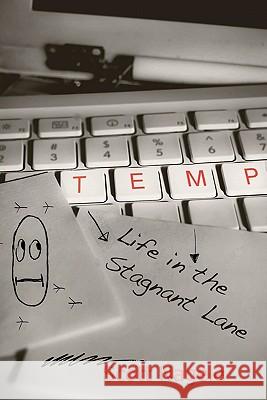 2 # 3 $ 4 % 5 ^ 6 & 7
TEMP
Life in the
Stagnant Lane